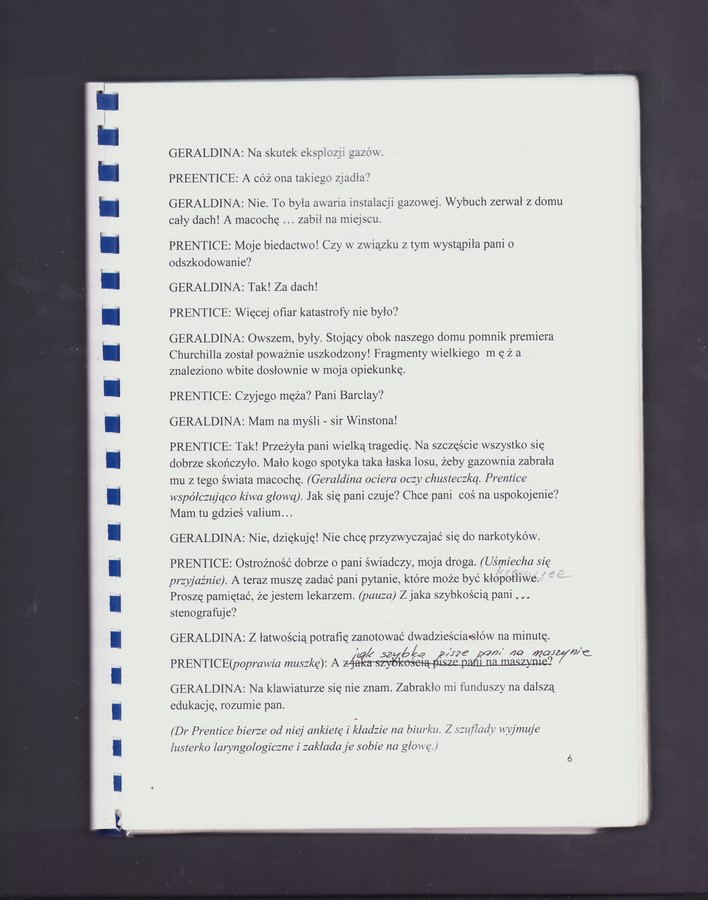 GERALDINA: Na skutek eksplozji gazów.
PREENTICE: A cóż ona takiego zjadła?
GERALDINA: Nie. To była awaria instalacji gazowej. Wybuch zerwał z domu
cały dach! A macochę ... zabił na miejscu.
PRENTICE: Moje biedactwo! Czy w związku z tym wystąpiła pani o
odszkodowanie?
GERALDINA: Tak! Za dach!
PRENTICE: Więcej ofiar katastrofy nie było?
GERALDINA: Owszem, były. Stojący obok naszego domu pomnik premiera
Churchilla został poważnie uszkodzony! Fragmenty wielkiego m ę ż a
znaleziono wbite dosłownie w moja opiekunkę.
PRENTICE: Czyjego męża? Pani Barclay?
GERALDINA: Mam na myśli - sir Winstona!
PRENTICE: Tak! Przeżyła pani wielką tragedię. Na szczęście wszystko się
dobrze skończyło. Mało kogo spotyka taka łaska losu, żeby gazownia zabrała
mu z tego świata macochę. (Geraldina ociera oczy chusteczką. Prentice
współczująco kiwa głową). Jak się pani czuje? Chce pani coś na uspokojenie?
Mam tu gdzieś valium…
GERALDINA: Nie, dziękuję! Nie chcę przyzwyczajać się do narkotyków.
PRENTICE: Ostrożność dobrze o pani świadczy, moja droga. (Uśmiecha się
przyjaźnie). A teraz muszę zadać pani pytanie, które może być kłopotliwe.
Proszę pamiętać, że jestem lekarzem. (pauza) Z jaka szybkością pani ...
stenografuje?
GERALDINA: Z łatwością potrafię zanotować dwadzieścia słów na minutę.
jak szybko pisze pani na maszynie
PRENTICE(poprawia muszkę): A z jaka szybkością pisze pani na maszynie?
GERALDINA: Na klawiaturze się nie znam. Zabrakło mi funduszy na dalszą
edukację, rozumie pan.
(Dr Prentice bierze od niej ankietę i kładzie na biurku. Z szuflady wyjmuje
lusterko laryngologiczne i zakłada je sobie na głowę.)
6